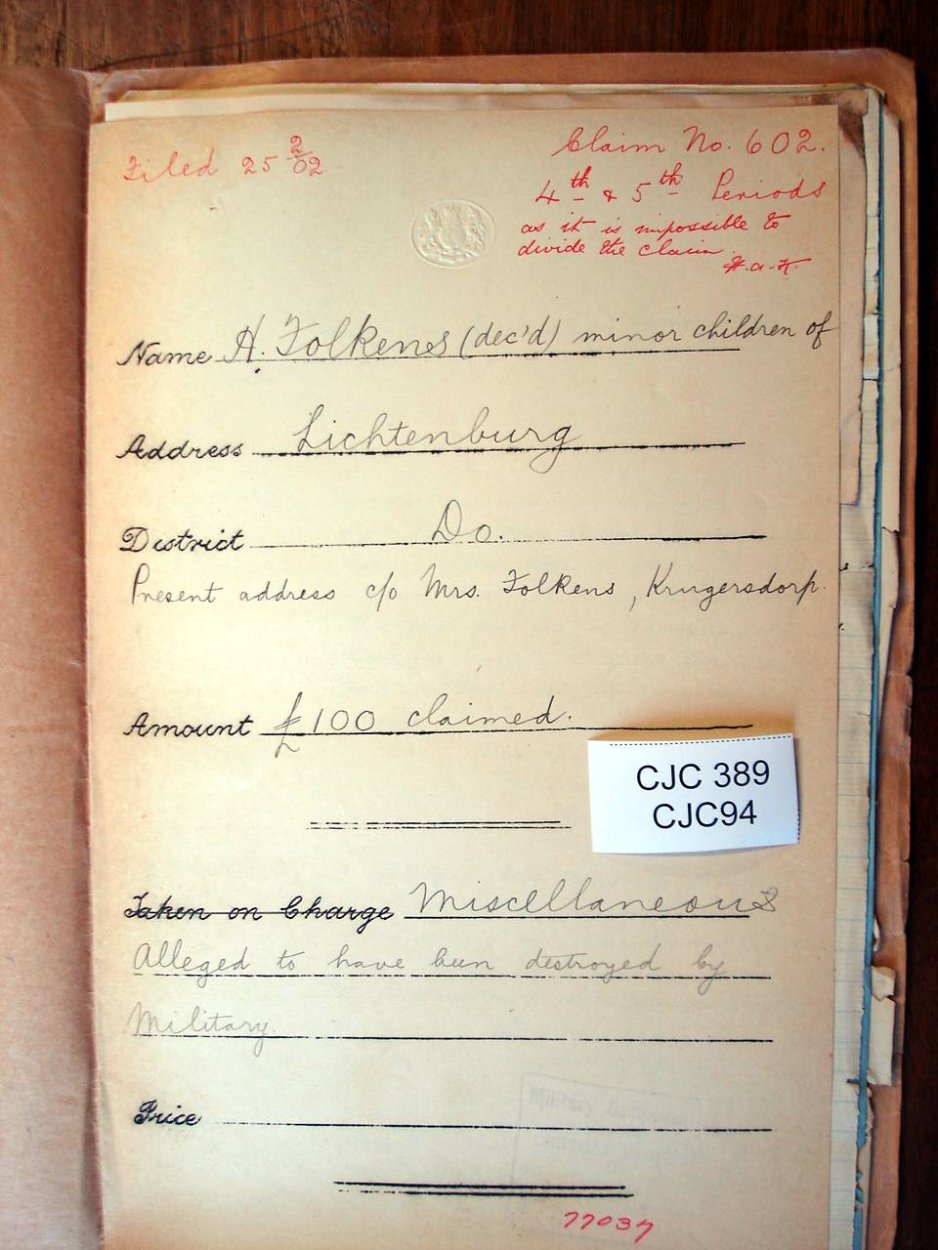 Filed 25 2/02
Claim No. 602.
4th & 5th Periods
as it is impossible to
divide the claim.
H.a.F.
Name H. Folkenes (dec'd) minor children of
Address Lichtenburg
District Do.
Present address c/o Mrs. Folkens, Krugersdorp.
Amount £100 claimed.
CJC 389
CJC94
Taken on Charge Miscellaneous
Alleged to have been destroyed by
Military.
Price
77037